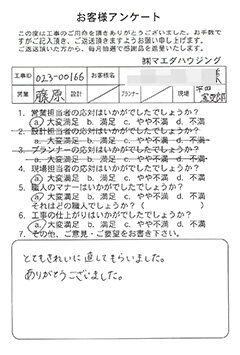 お客様アンケート
この度は工事のご用命を頂きありがとうございました。お手数で
すがご記入頂き、ご返送頂きますようお願い申し上げます。
ご返送頂いた方から、毎月抽選で感謝品を進呈いたします。
㈱マエダハウジング
工事ID 023-00166 お客様名
営業 藤原 設計 プランナー 現場
1. 営業担当者の応対はいかがでしたでしょうか?
a. 大変満足 b. 満足 c. やや不満 d. 不満
2. 設計担当者の応対はいかがでしたでしょうか?
a. 大変満足 b. 満足 c. やや不満 d. 不満
3. プランナーの応対はいかがでしたでしょうか?
a. 大変満足 b. 満足 c. やや不満 d. 不満
4. 現場担当者の応対はいかがでしたでしょうか?
a. 大変満足 b. 満足 c. やや不満 d. 不満
5. 職人のマナーはいかがでしたでしょうか?
a. 大変満足 b. 満足 c. やや不満 d. 不満
それはどの職人でしょうか? ( )
6. 工事の仕上がりはいかがでしたでしょうか?
a. 大変満足 b. 満足 c. やや不満 d. 不満
7. その他、ご意見・ご要望をお書き下さい。
とてもきれいに直してもらいました。
ありがとうございました。